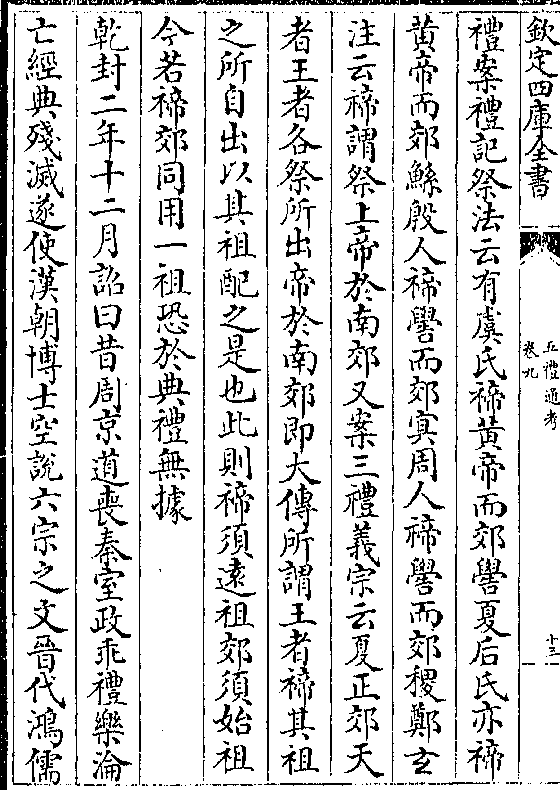 欽定四庫全書
五禮通考
卷九
十三
禮案禮記祭法云有虞氏禘黃帝而郊嚳夏后氏亦禘
黃帝而郊鯀殷人禘嚳而郊冥周人禘嚳而郊稷鄭玄
注云禘謂祭上帝於南郊又案三禮義宗云夏正郊天
者王者各祭所出帝於南郊即大傳所謂王者禘其祖
之所自出以其祖配之是也此則禘須遠祖郊須始祖
今若禘郊同用一祖恐於典禮無據
乾封二年十二月詔曰昔周京道喪秦室政乖禮樂淪
亡經典殘滅遂使漢朝博士空說六宗之文晉代鴻儒